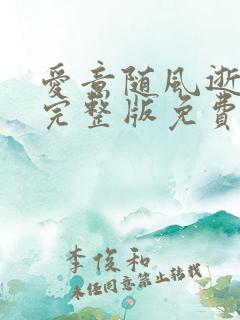 爱意随风逝
完整版免费
李俊和
未经同意禁止转载